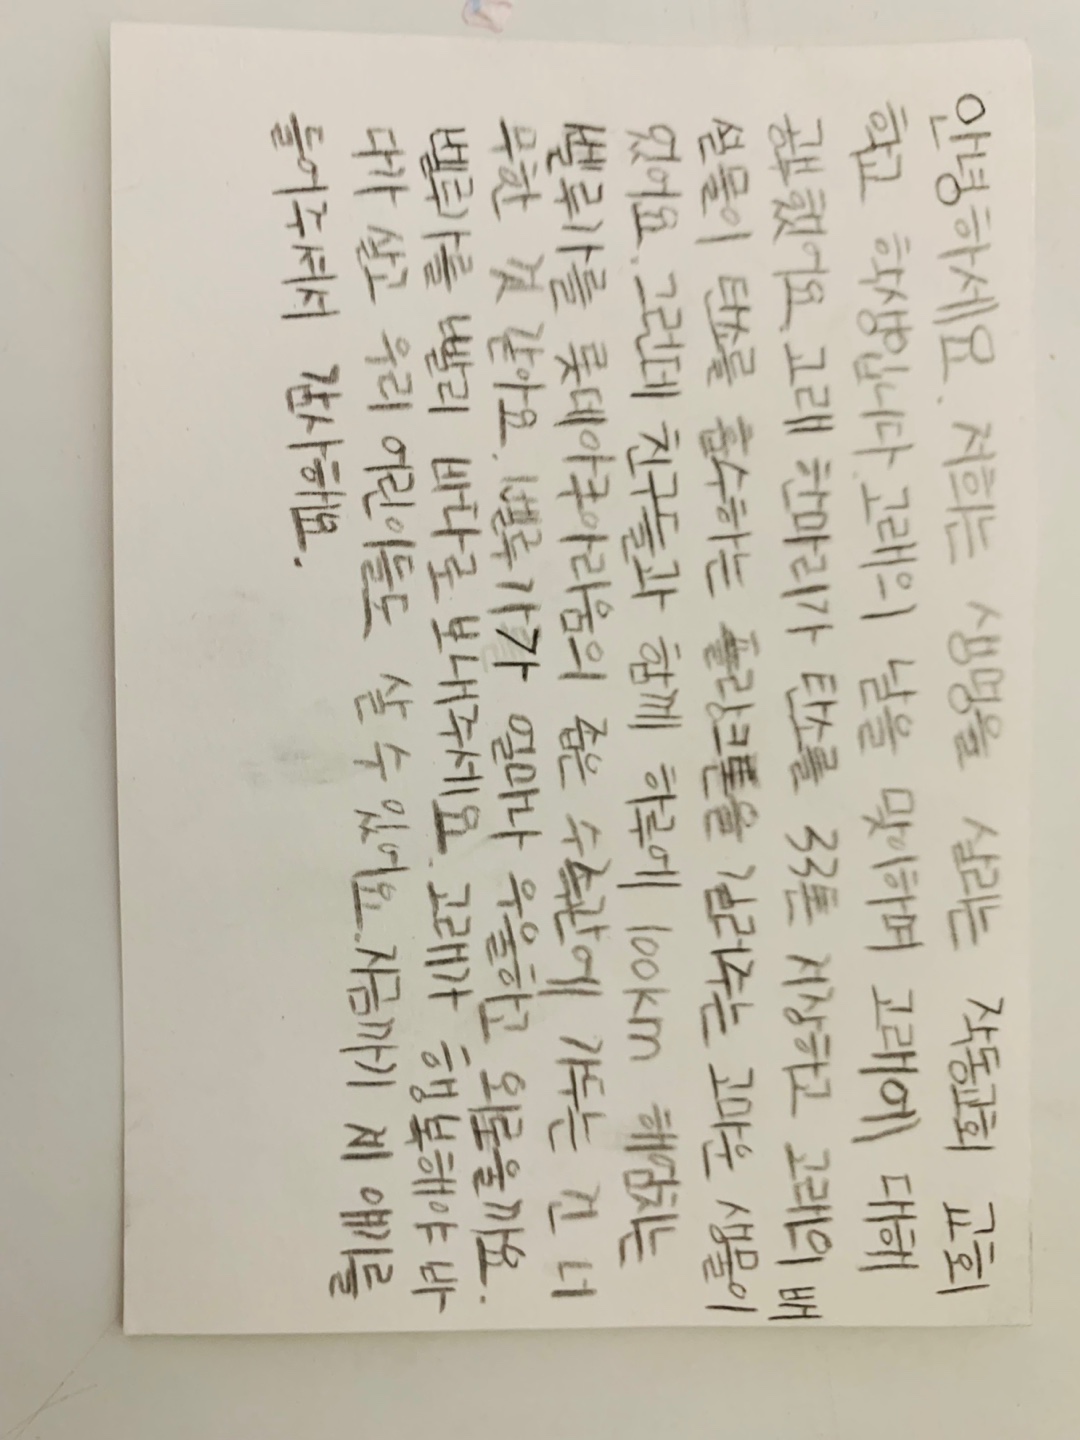 안녕하세요. 저희는 생명을 살리는 작동교회 교회
학교 학생입니다. 고래의 날을 맞이하며 고래에 대해
공부했어요. 고래 한마리가 탄소를 33톤 저장하고 고래의 배
설물이 탄소를 흡수하는 플랑크톤을 길러주는 고마운 생물이
있어요. 그런데 친구들과 함께 하루에 100km 헤엄치는
벨루가를 롯데아쿠아리움의 좁은 수족관에 가두는 건 너
무한 것 같아요. 벨루가가 얼마나 우울하고 외로울까요.
벨루가를 빨리 바다로 보내주세요. 고래가 행복해야 바
다가 살고 우리 어린이들도 살 수 있어요. 지금까지 제 얘기를
들어주셔서 감사해요.